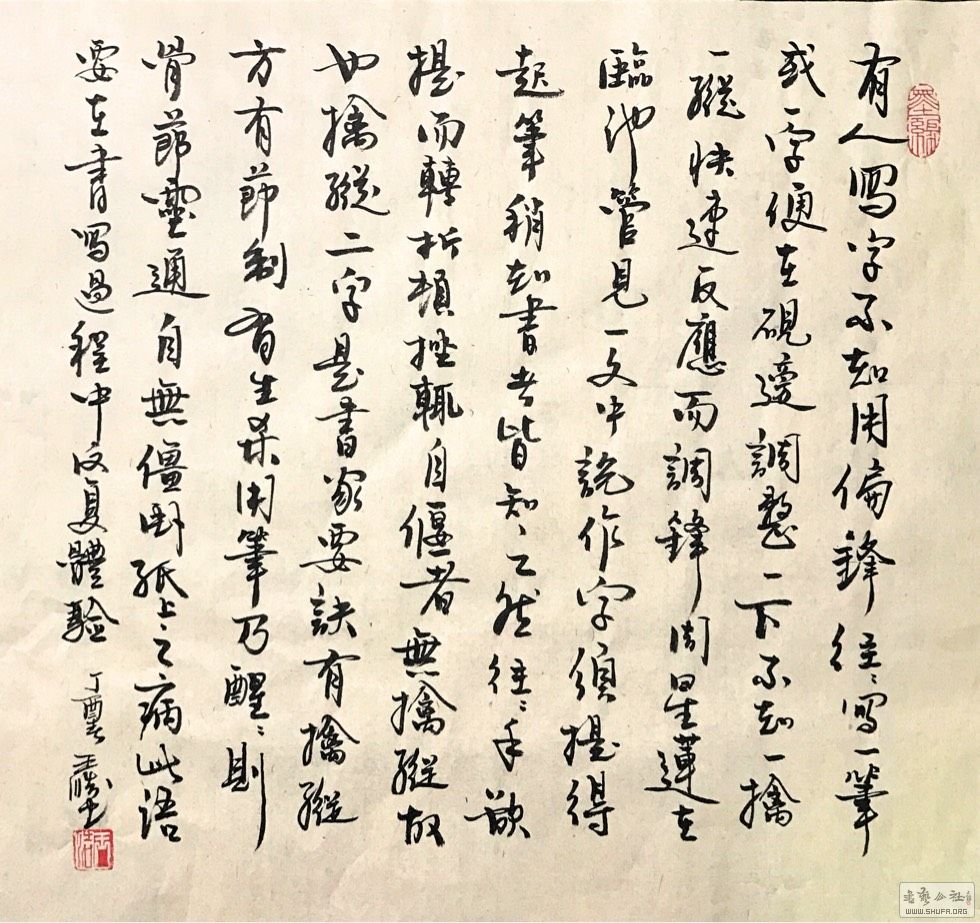 有人寫字不知用偏鋒往〻寫一筆
或一字便在硯邊調整一下不知一擒
一縱快速反應而調鋒周星蓮在
臨池管見一文中說作字須提得
起筆稍知書者皆知〻之然往〻手欲
提而轉折頓挫輒自偃者無擒縱故
也擒縱二字是書家要訣有擒縱
方有節制有生殺用筆乃醒〻則
骨節靈通自無僵臥紙上之病此語
要在書寫過程中反复體驗
丁酉春
書藝公社
WWW.SHUFA.ORG